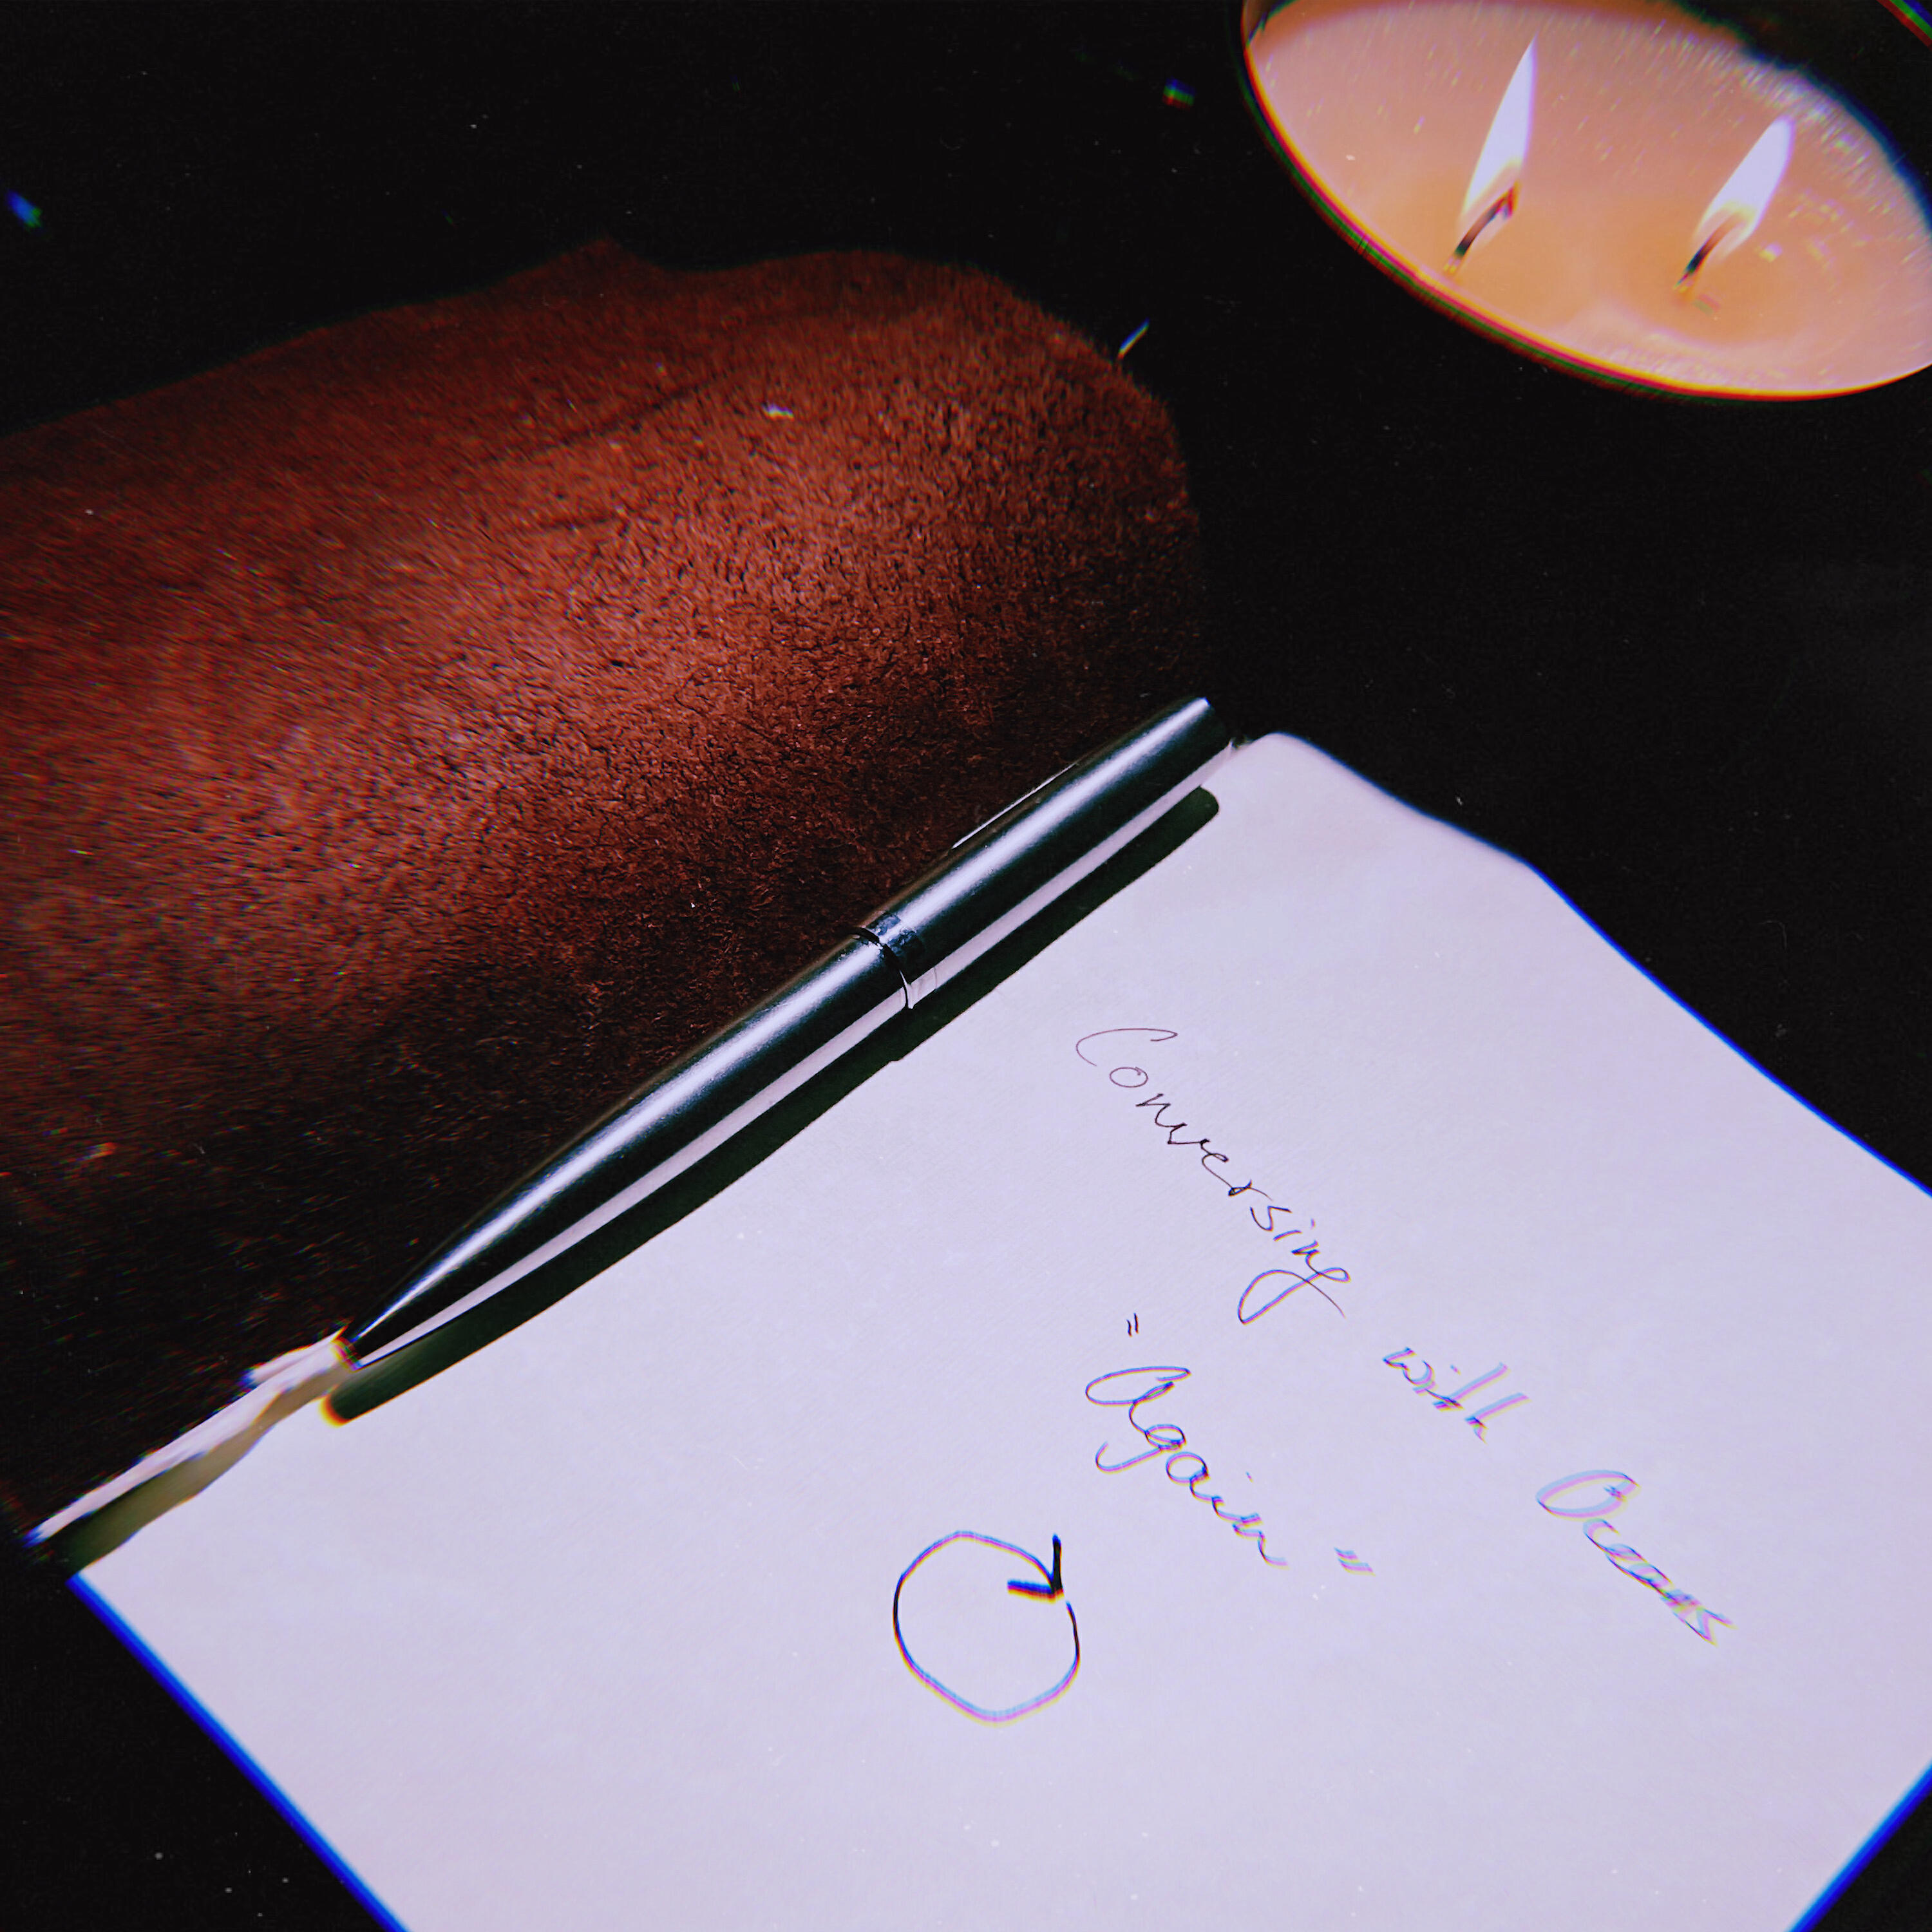 Conversing with Oceans
"Again"